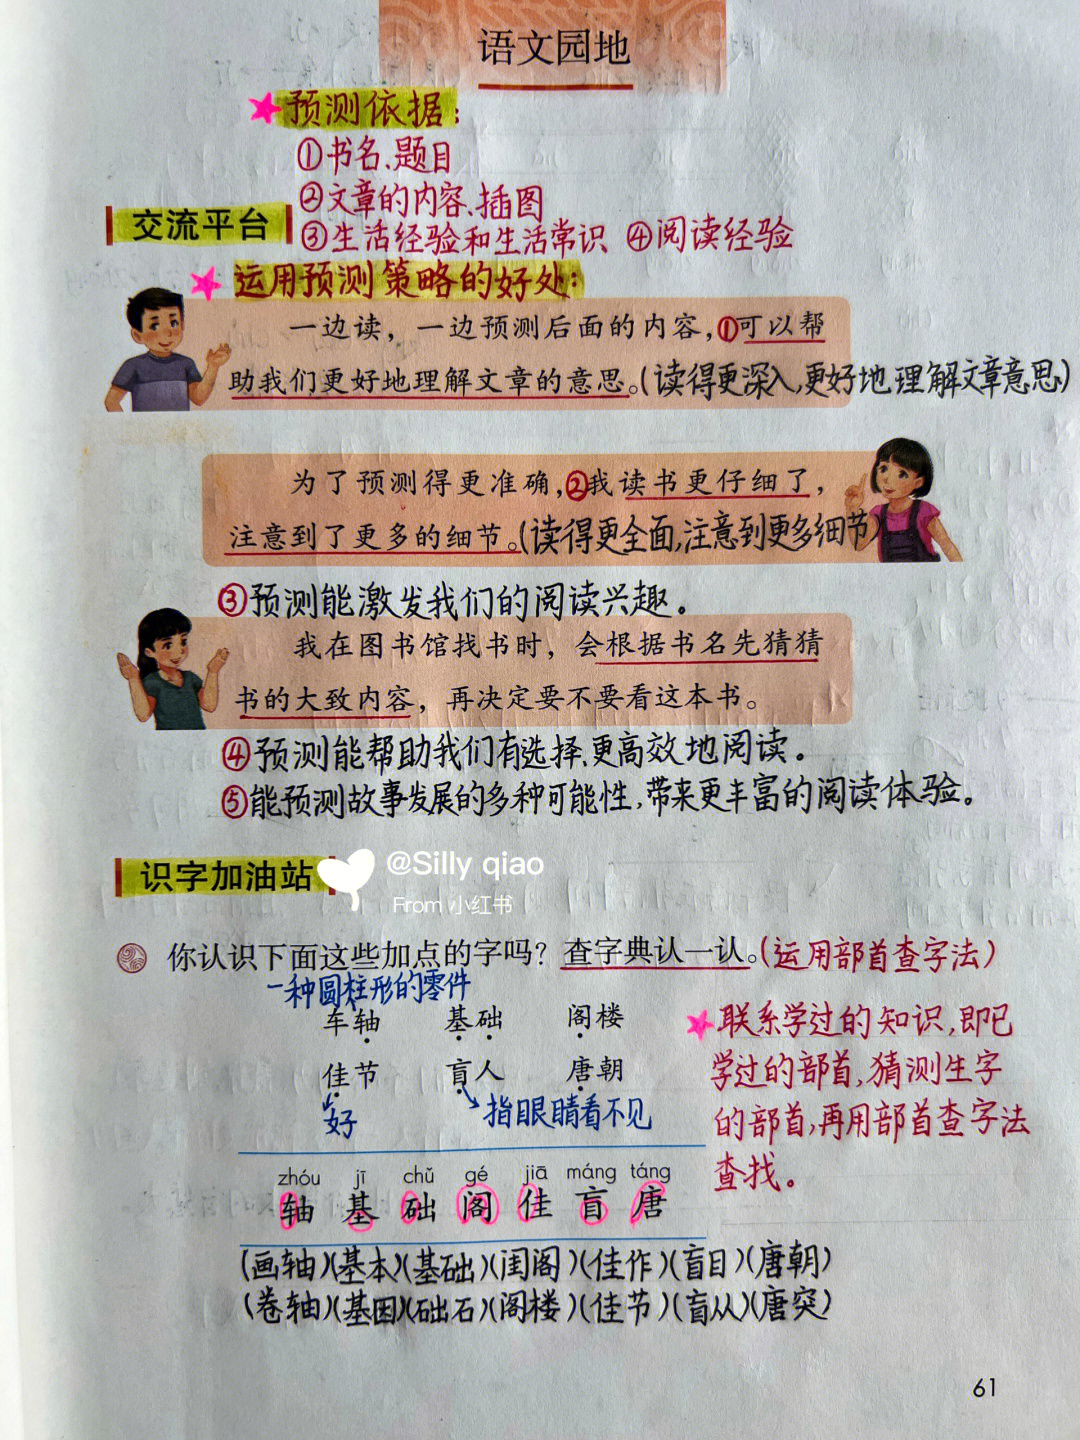 语文园地
预测依据：
①书名、题目
②文章的内容、插图
交流平台
③生活经验和生活常识 ④阅读经验
运用预测策略的好处：
一边读，一边预测后面的内容，①可以帮
助我们更好地理解文章的意思。(读得更深入,更好地理解文章意思)
为了预测得更准确，②我读书更仔细了，
注意到了更多的细节。(读得更全面,注意到更多细节)
③预测能激发我们的阅读兴趣。
我在图书馆找书时，会根据书名先猜猜
书的大致内容，再决定要不要看这本书。
④预测能帮助我们有选择、更高效地阅读。
⑤能预测故事发展的多种可能性,带来更丰富的阅读体验。
识字加油站
@Silly qiao
From 小红书
你认识下面这些加点的字吗？查字典认一认。(运用部首查字法)
一种圆柱形的零件
车轴 基础 阁楼
佳节 盲人 唐朝
好 指眼睛看不见
联系学过的知识,即已
学过的部首,猜测生字
的部首,再用部首查字法
查找。
zhóu jī chǔ gé jiā máng táng
轴 基 础 阁 佳 盲 唐
(画轴)(基本)(基础)(闺阁)(佳作)(盲目)(唐朝)
(卷轴)(基因)(础石)(阁楼)(佳节)(盲从)(唐突)
61